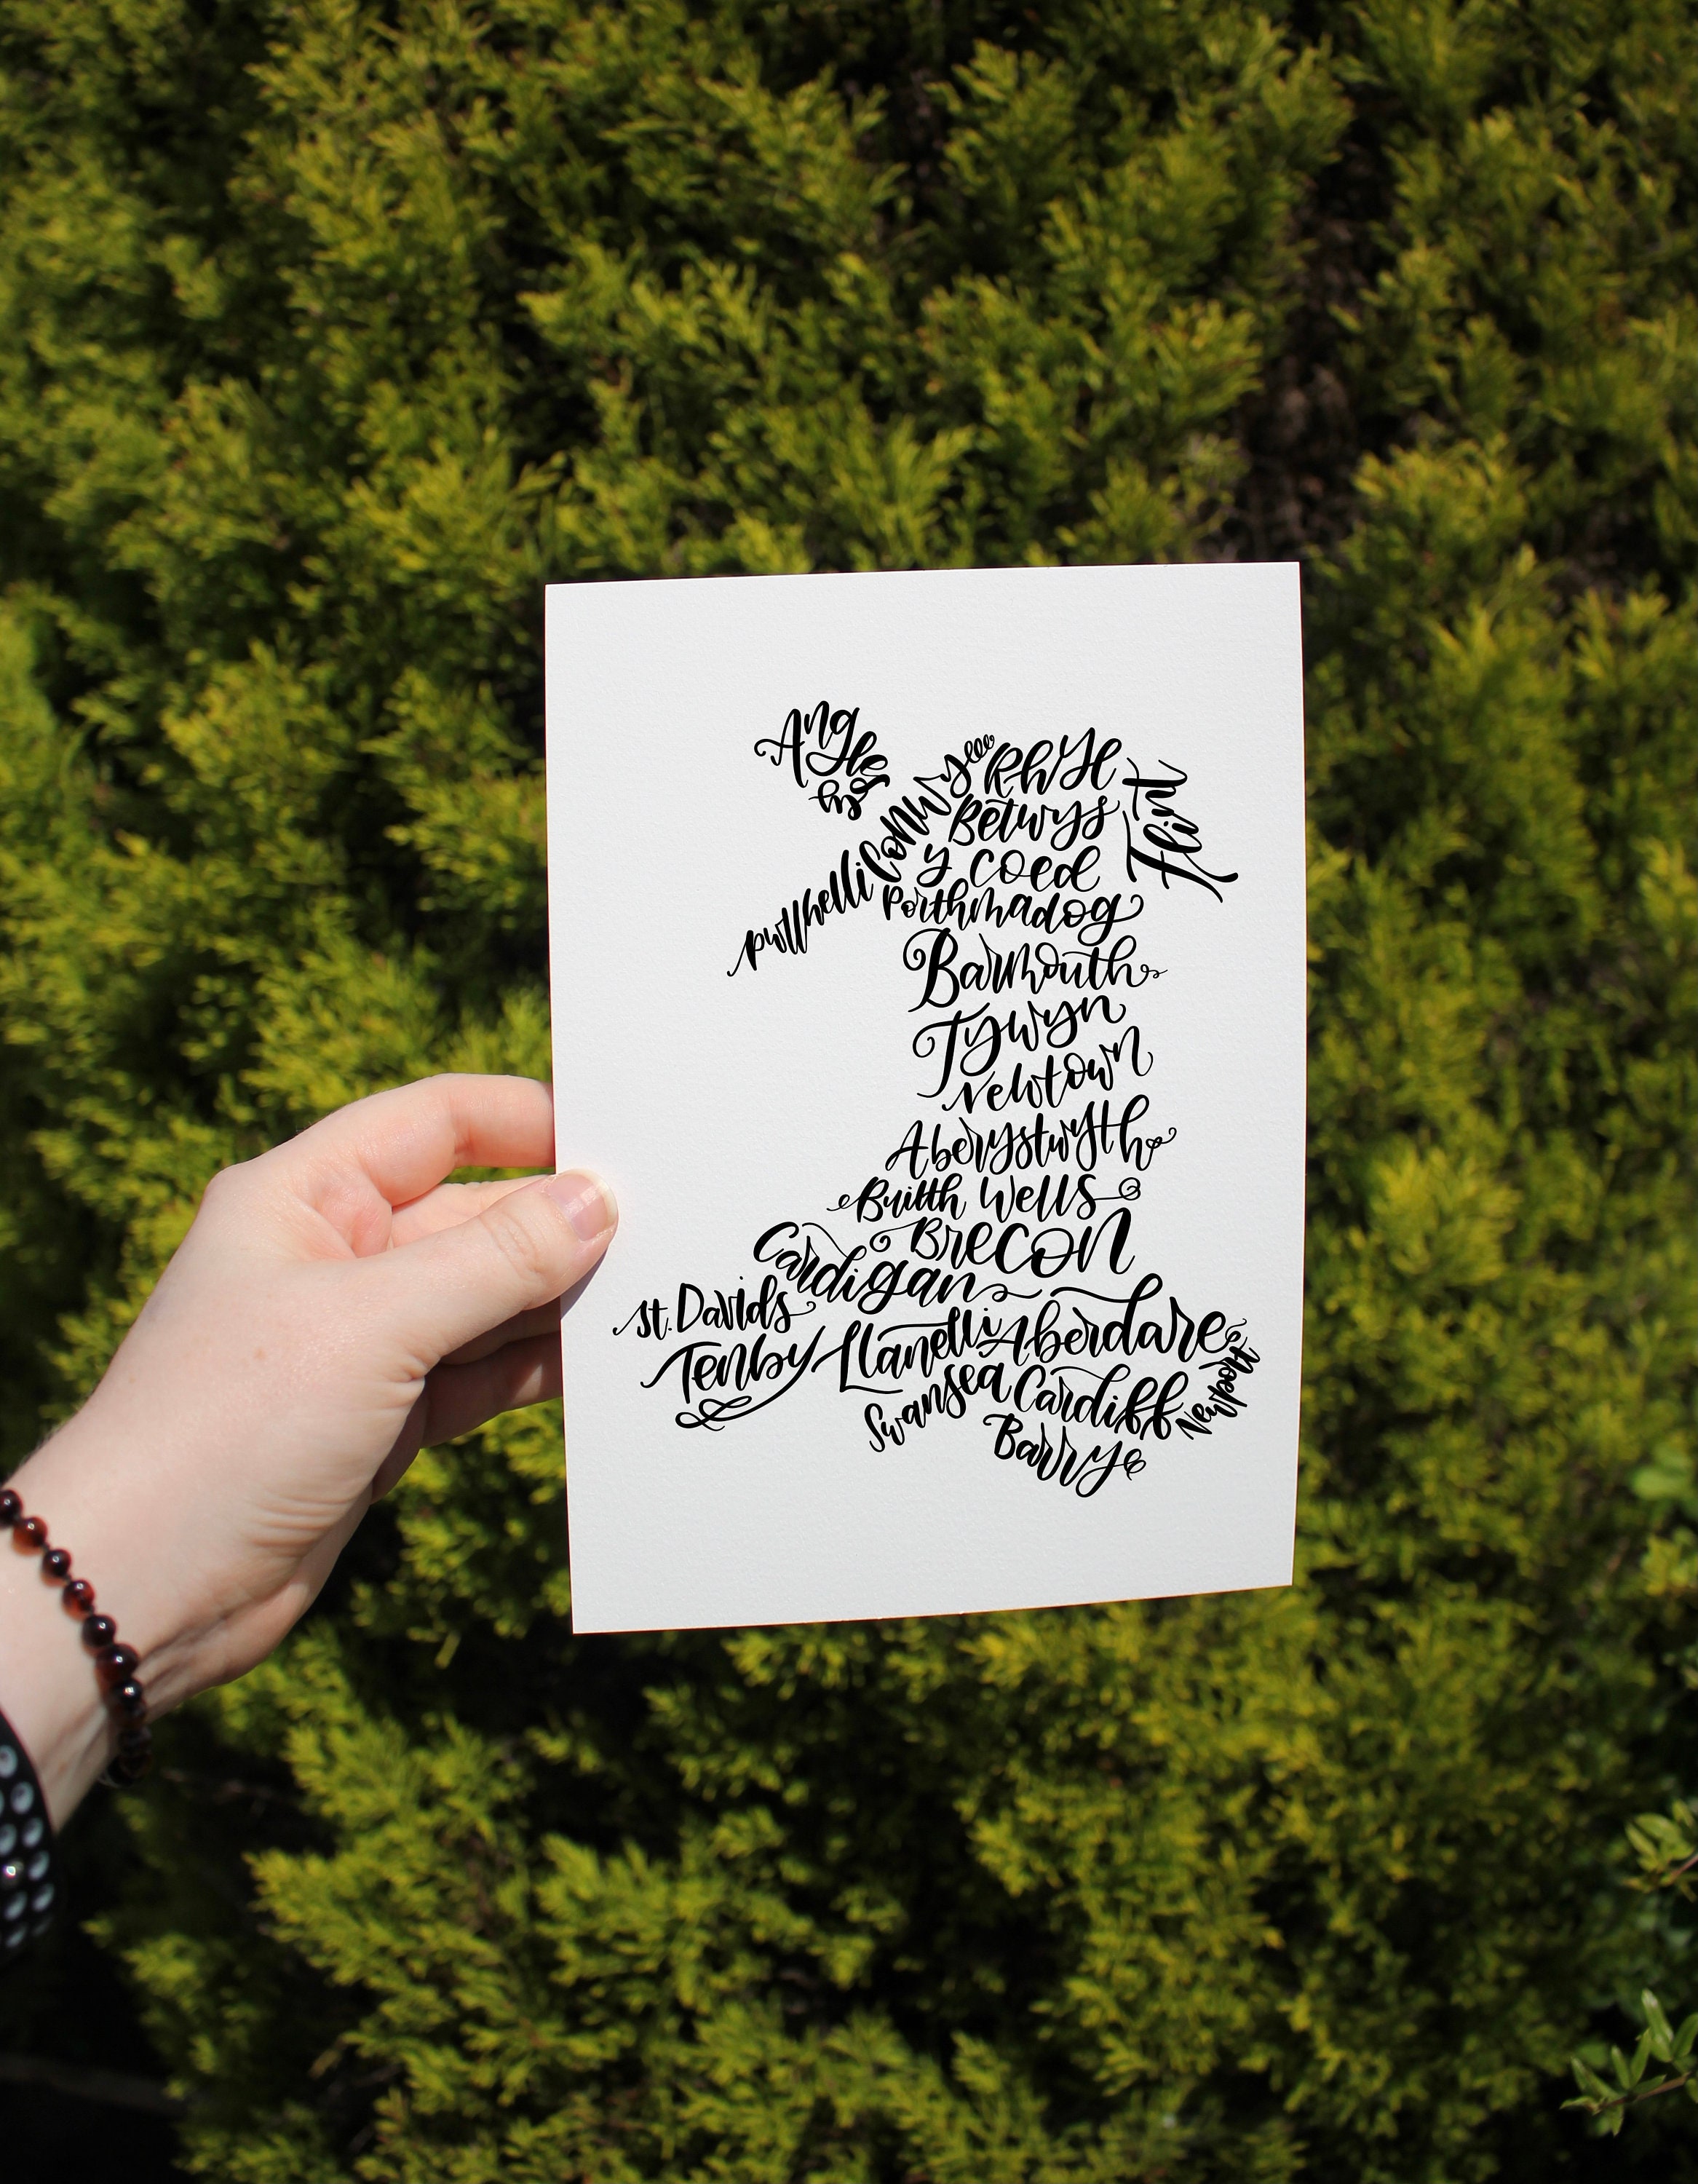 Anglesey
Conwy
Rhyl
Flint
Betwys
y coed
pwllhelli
Porthmadog
Barmouth
Tywyn
Newtown
Aberystwyth
Builth Wells
Brecon
Cardigan
St. Davids
Aberdare
Tenby
Llanelli
Swansea
Cardiff
Newport
Barry